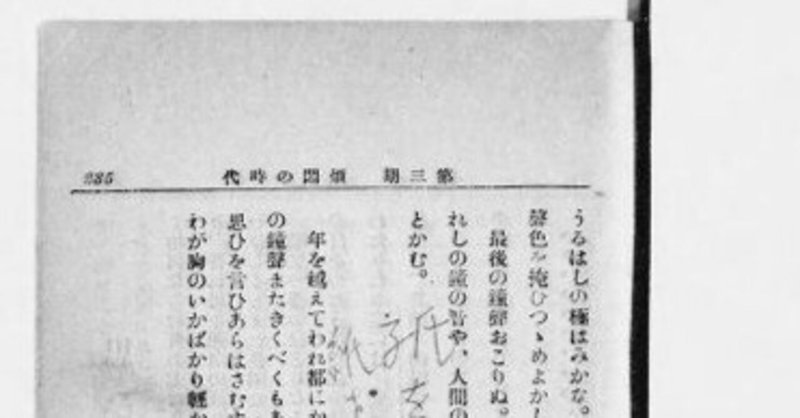 第三期 煩悶の時代
235
うるはしの極はみかな。
聲色を掩ひつゝめよかし
最後の鐘聲おこりぬ。
れしの鐘の旨や、人間の
とかむ。
年を越えてわれ都にか
の鐘聲またきくべくもあ
思ひを言ひあらはさむす
わが胸のいかばかり輕か